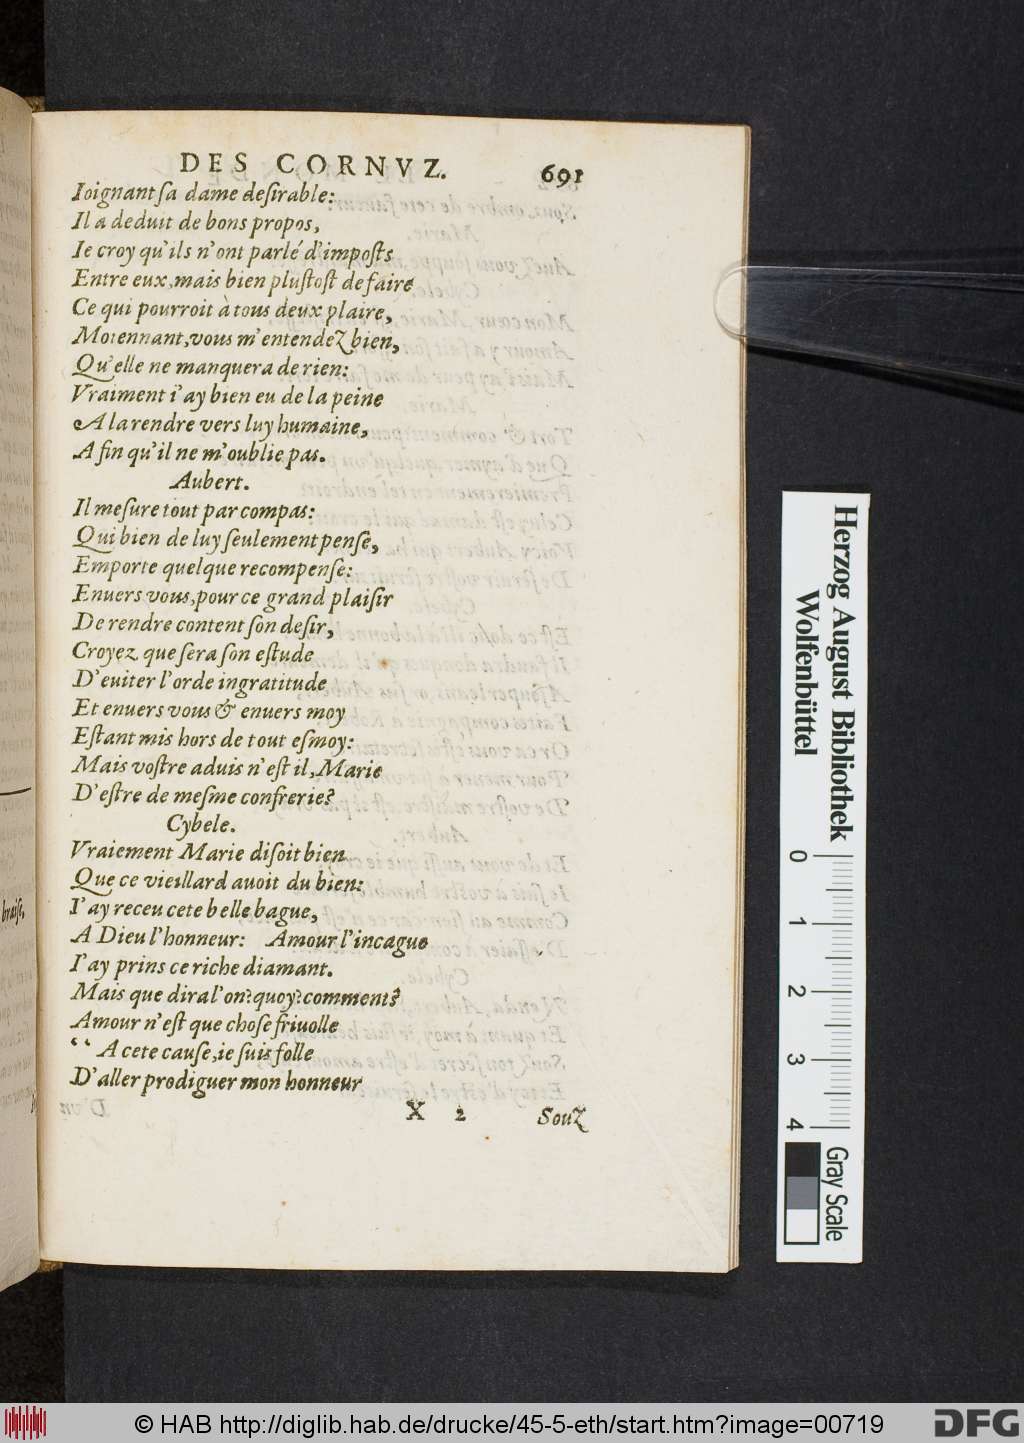 DES CORNVZ. 691
Ioignant sa dame desirable:
Il a deduit de bons propos,
Ie croy qu'ils n'ont parlé d'imposts
Entre eux, mais bien plustost de faire
Ce qui pourroit à tous deux plaire,
Moiennant, vous m'entendez bien,
Qu'elle ne manquera de rien:
Vraiment i'ay bien eu de la peine
A la rendre vers luy humaine,
A fin qu'il ne m'oublie pas.
Aubert.
Il mesure tout par compas:
Qui bien de luy seulement pense,
Emporte quelque recompense:
Enuers vous, pour ce grand plaisir
De rendre content son desir,
Croyez que sera son estude
D'euiter l'orde ingratitude
Et enuers vous & enuers moy
Estant mis hors de tout esmoy:
Mais vostre aduis n'est il, Marie
D'estre de mesme confrerie?
Cybele.
Vraiement Marie disoit bien
Que ce vieillard auoit du bien:
I'ay receu cete belle bague,
A Dieu l'honneur: Amour l'incague
I'ay prins ce riche diamant.
Mais que dira l'on? quoy? comment?
Amour n'est que chose friuolle
“ A cete cause, ie suis folle
D'aller prodiguer mon honneur
X 2 Souz
braise,
Herzog August Bibliothek
Wolfenbüttel
0 1 2 3 4
Gray Scale
© HAB http://diglib.hab.de/drucke/45-5-eth/start.htm?image=00719
DFG